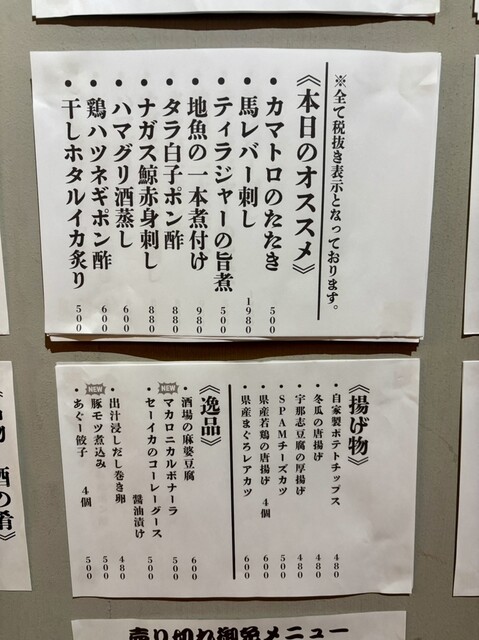 ※全て税抜き表示となっております。
《本日のオススメ》
・カマトロのたたき 500
・馬レバー刺し 1980
・ティラジャーの旨煮 500
・地魚の一本煮付け 980
・タラ白子ポン酢 880
・ナガス鯨赤身刺し 880
・ハマグリ酒蒸し 600
・鶏ハツネギポン酢 600
・干しホタルイカ炙り 500
《揚げ物》
・自家製ポテトチップス 480
・冬瓜の唐揚げ 480
・宇那志豆腐の厚揚げ 480
・SPAMチーズカツ 500
・県産若鶏の唐揚げ 4個 600
・県産まぐろレアカツ 600
《逸品》
・酒場の麻婆豆腐 600
NEW
・マカロニカルボナーラ 500
・セーイカのコーレーグース
醤油漬け 500
・出汁浸しだし巻き卵 480
NEW
・豚モツ煮込み 500
・あぐー餃子 4個 500
酒の肴》
売り切れ御免メニュー